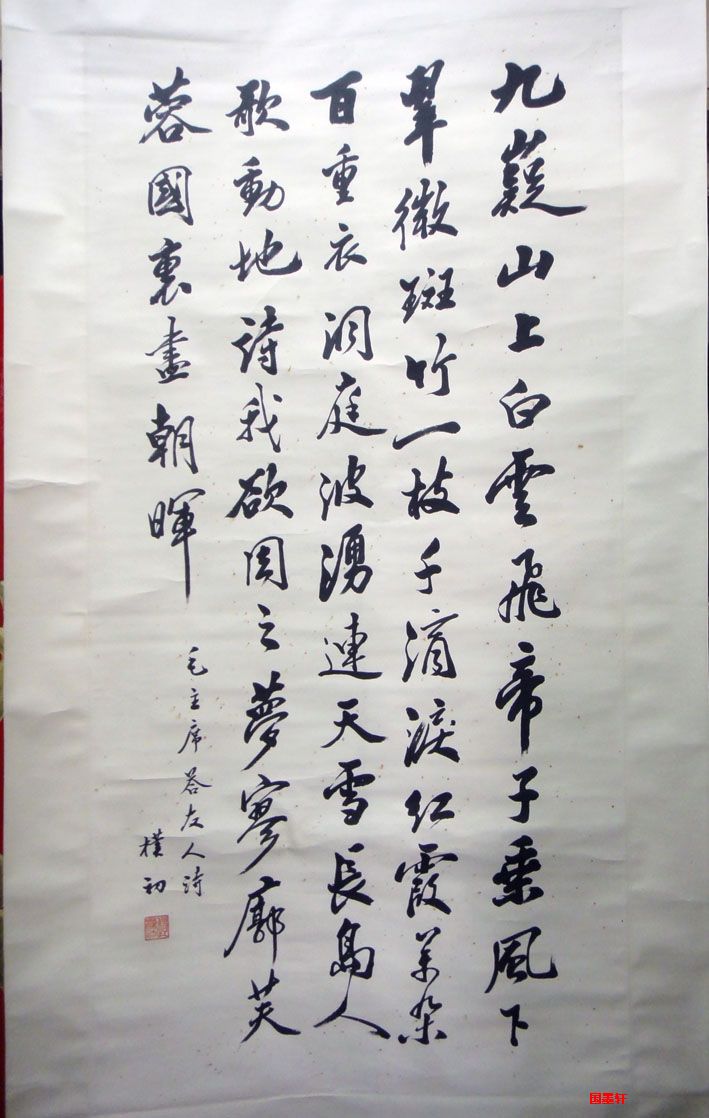 九嶷山上白雲飛帝子乘風下
翠微斑竹一枝千滴淚紅霞萬朵
百重衣洞庭波湧連天雪長島人
歌動地詩我欲因之夢寥廓芙
蓉國裏盡朝暉
毛主席答友人詩
樸初
国墨轩